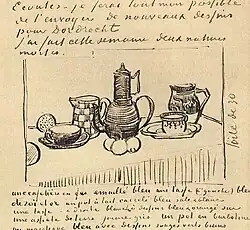 Ecoutes - je ferai tout mon possible
de t'envoyer de nouveaux dessins
pour Dordrecht
j'ai fait cette semaine deux natures
mortes.
toile de 30
une cafetière en fer émaillé bleu une tasse (à gauche) bleu
un pot à lait carrelé bleu
une tasse à droite blanche dessins bleus
une assiette jaune gris un pot en barbotine
bleu avec dessins rouges verts bruns